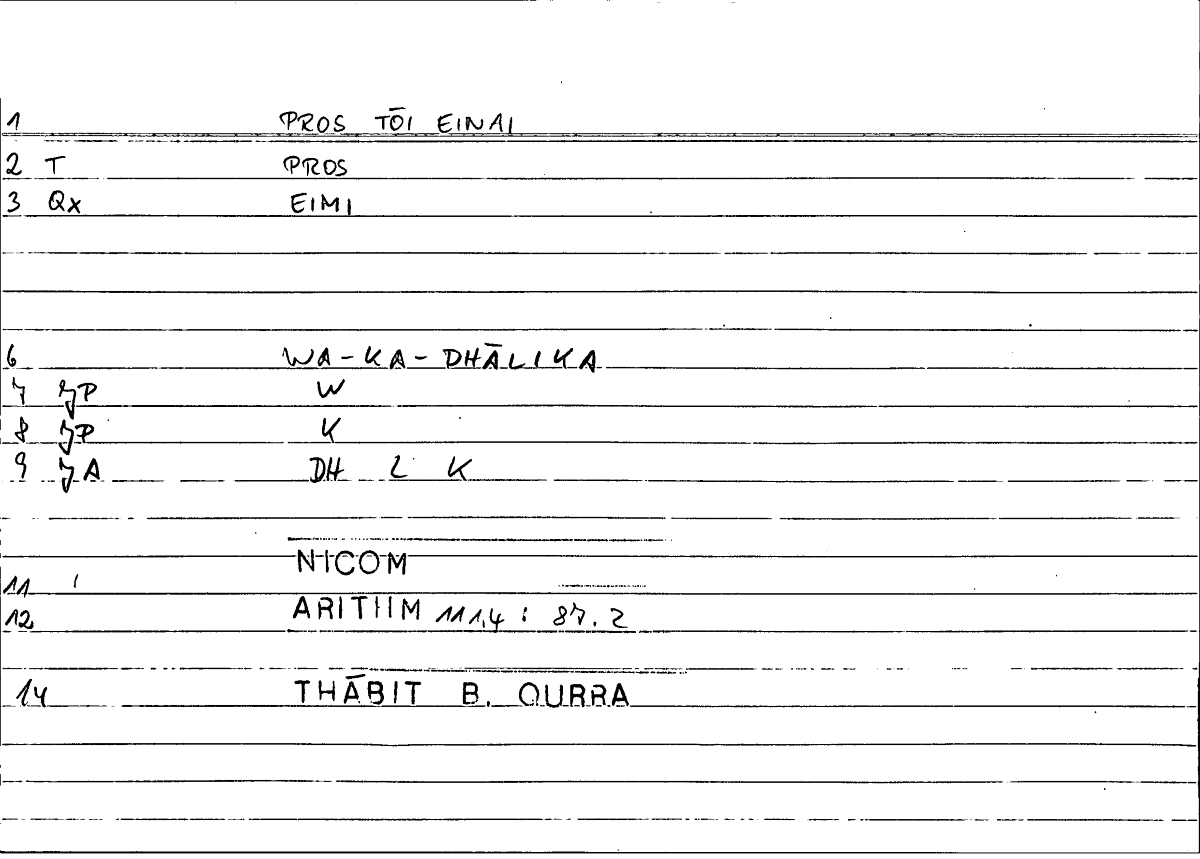 1 PROS TŌI EINAI
2 T PROS
3 Qx EIMI
6 WA-KA-DHĀLIKA
7 JP W
8 JP K
9 JA DH L K
NICOM
11
12 ARITHM 111,4 : 87.2
14 THĀBIT B. QURRA